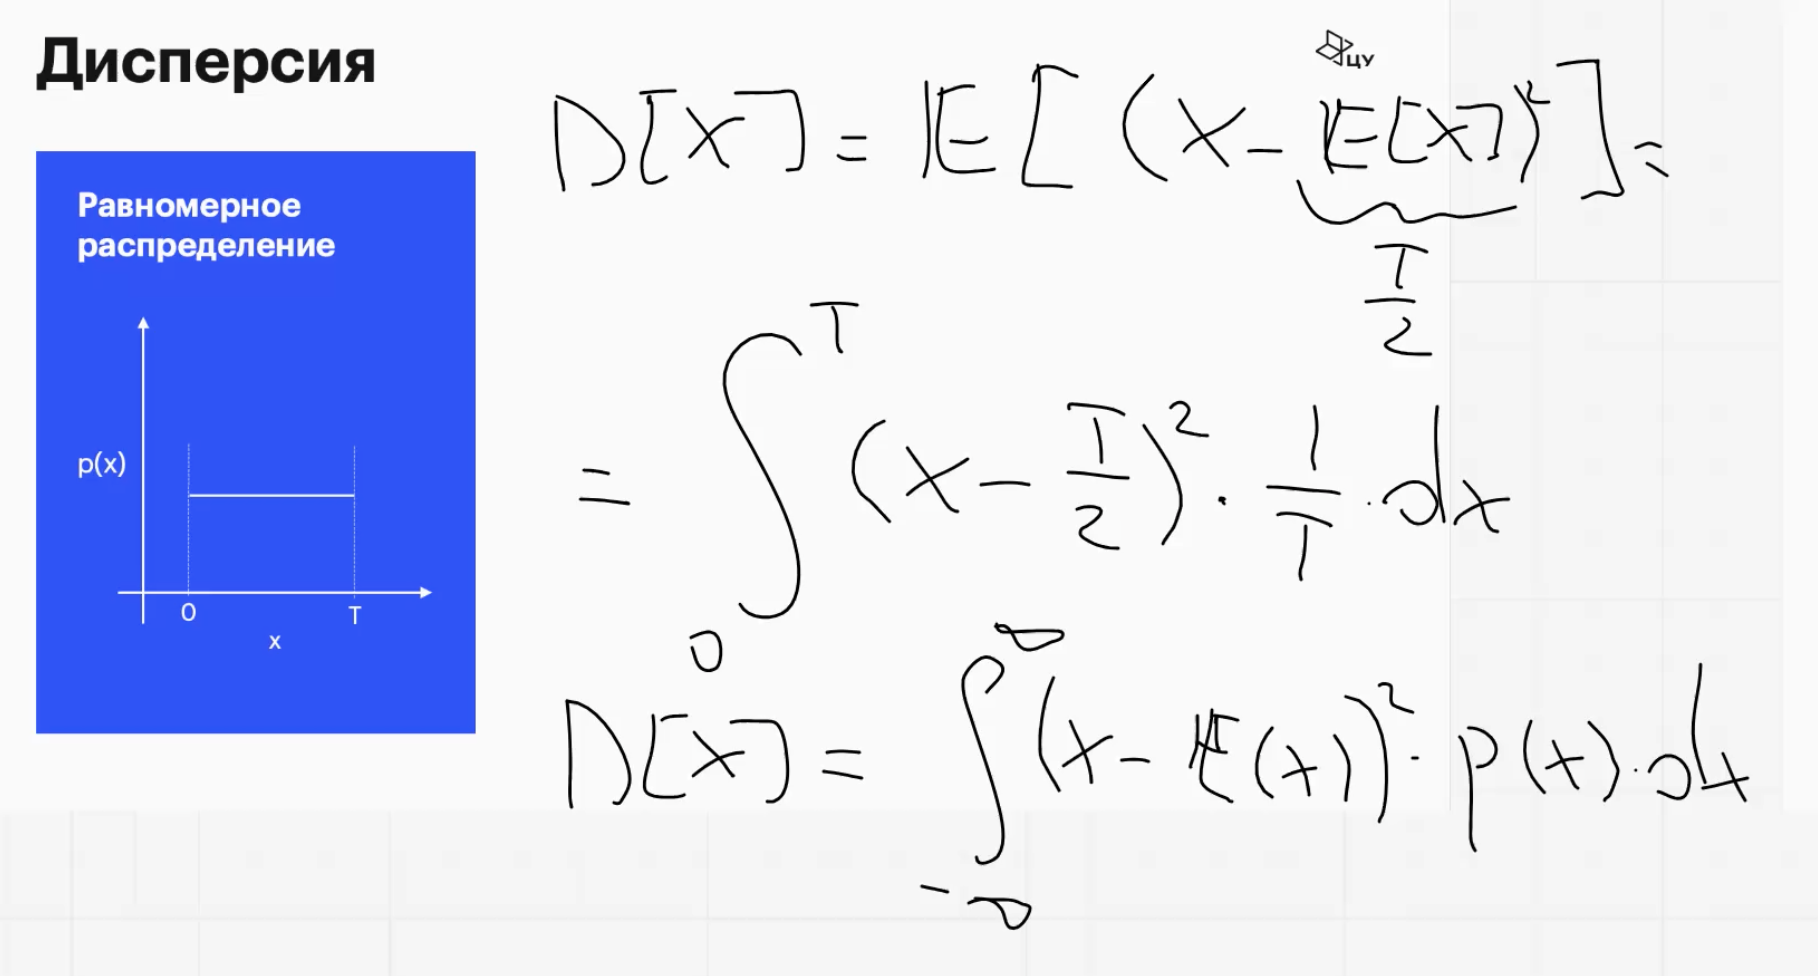 Дисперсия
ЦУ
Равномерное
распределение
p(x)
0 T
x
D[X] = E[(X - E[X])²] =
T/2
= ∫₀ᵀ (x - T/2)² · 1/T · dx
D[X] = ∫_{-∞}^{∞} (x - E(x))² · p(x) · dx